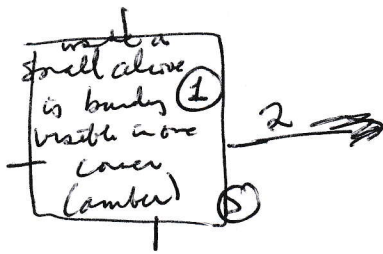 small alcove
is barely 1
visible in one
corner
(amber)
2
5